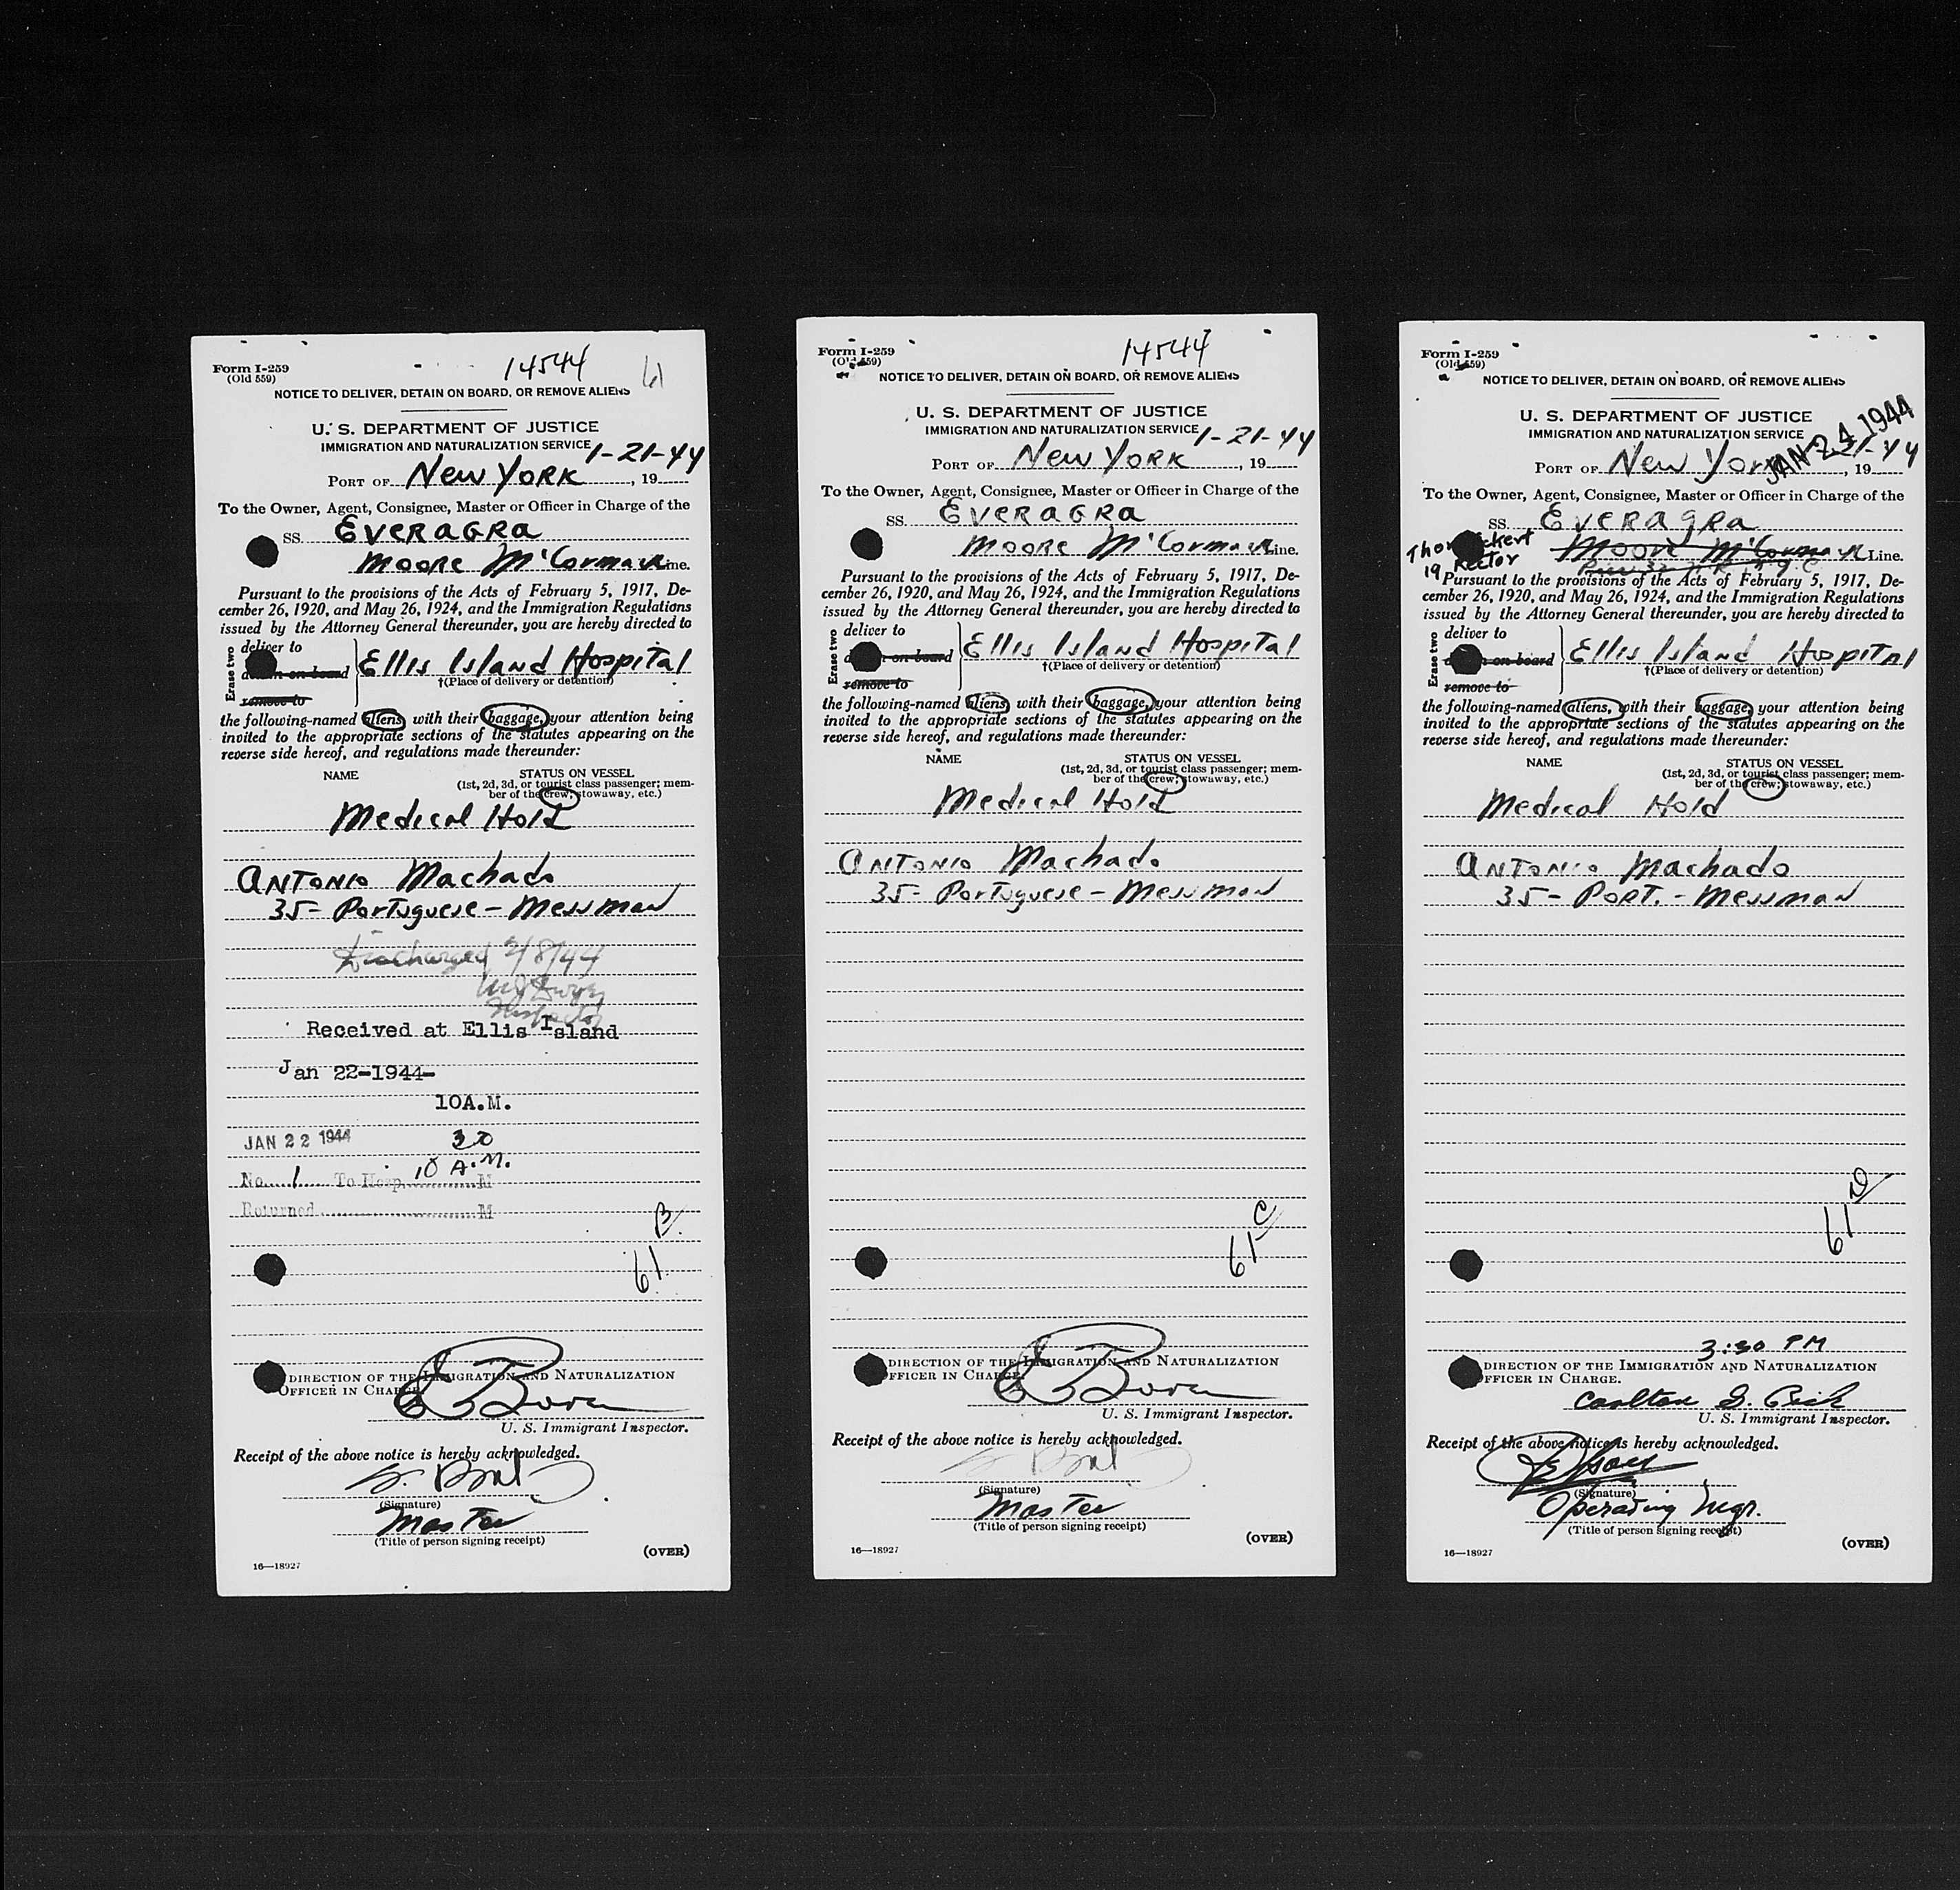 Form I-259
(Old 559)
14544
61
NOTICE TO DELIVER, DETAIN ON BOARD, OR REMOVE ALIENS
U. S. DEPARTMENT OF JUSTICE
IMMIGRATION AND NATURALIZATION SERVICE
1-21-44
PORT OF New York, 19
To the Owner, Agent, Consignee, Master or Officer in Charge of the
SS. Everagra
Moore McCormack Line.
Pursuant to the provisions of the Acts of February 5, 1917, De-
cember 26, 1920, and May 26, 1924, and the Immigration Regulations
issued by the Attorney General thereunder, you are hereby directed to
Erase two
deliver to
on board
remove to
Ellis Island Hospital
†(Place of delivery or detention)
the following-named aliens with their baggage, your attention being
invited to the appropriate sections of the statutes appearing on the
reverse side hereof, and regulations made thereunder:
NAME
STATUS ON VESSEL
(1st, 2d, 3d, or tourist class passenger; mem-
ber of the crew; stowaway, etc.)
Medical Hold
Antonio Machado
35- Portuguese - Messman
Discharged 2/8/44
Inspector
Received at Ellis Island
Jan 22-1944-
10A.M.
JAN 22 1944
30
No. 1 To Hosp. 10 A.M. M
Returned M
61 B
DIRECTION OF THE IMMIGRATION AND NATURALIZATION
OFFICER IN CHARGE
U. S. Immigrant Inspector.
Receipt of the above notice is hereby acknowledged.
(Signature)
Master
(Title of person signing receipt)
(OVER)
16—18927
Form I-259
(Old 559)
14544
NOTICE TO DELIVER, DETAIN ON BOARD, OR REMOVE ALIENS
U. S. DEPARTMENT OF JUSTICE
IMMIGRATION AND NATURALIZATION SERVICE
1-21-44
PORT OF New York, 19
To the Owner, Agent, Consignee, Master or Officer in Charge of the
SS. Everagra
Moore McCormack Line.
Pursuant to the provisions of the Acts of February 5, 1917, De-
cember 26, 1920, and May 26, 1924, and the Immigration Regulations
issued by the Attorney General thereunder, you are hereby directed to
Erase two
deliver to
on board
remove to
Ellis Island Hospital
†(Place of delivery or detention)
the following-named aliens with their baggage, your attention being
invited to the appropriate sections of the statutes appearing on the
reverse side hereof, and regulations made thereunder:
NAME
STATUS ON VESSEL
(1st, 2d, 3d, or tourist class passenger; mem-
ber of the crew; stowaway, etc.)
Medical Hold
Antonio Machado
35- Portuguese - Messman
61 C
DIRECTION OF THE IMMIGRATION AND NATURALIZATION
FFICER IN CHARGE
U. S. Immigrant Inspector.
Receipt of the above notice is hereby acknowledged.
(Signature)
Master
(Title of person signing receipt)
(OVER)
16—18927
Form I-259
(Old 559)
NOTICE TO DELIVER, DETAIN ON BOARD, OR REMOVE ALIENS
U. S. DEPARTMENT OF JUSTICE
IMMIGRATION AND NATURALIZATION SERVICE
JAN 24 1944
1-21-44
PORT OF New York, 19
To the Owner, Agent, Consignee, Master or Officer in Charge of the
SS. Everagra
Moore McCormack Line.
19 Rector
Pursuant to the provisions of the Acts of February 5, 1917, De-
cember 26, 1920, and May 26, 1924, and the Immigration Regulations
issued by the Attorney General thereunder, you are hereby directed to
Erase two
deliver to
on board
remove to
Ellis Island Hospital
†(Place of delivery or detention)
the following-named aliens, with their baggage, your attention being
invited to the appropriate sections of the statutes appearing on the
reverse side hereof, and regulations made thereunder:
NAME
STATUS ON VESSEL
(1st, 2d, 3d, or tourist class passenger; mem-
ber of the crew; stowaway, etc.)
Medical Hold
Antonio Machado
35- Port. - Messman
61 D
3:30 PM
DIRECTION OF THE IMMIGRATION AND NATURALIZATION
FFICER IN CHARGE.
Carlton G.
U. S. Immigrant Inspector.
Receipt of the above notice is hereby acknowledged.
(Signature)
Operating Mgr.
(Title of person signing receipt)
(OVER)
16—18927